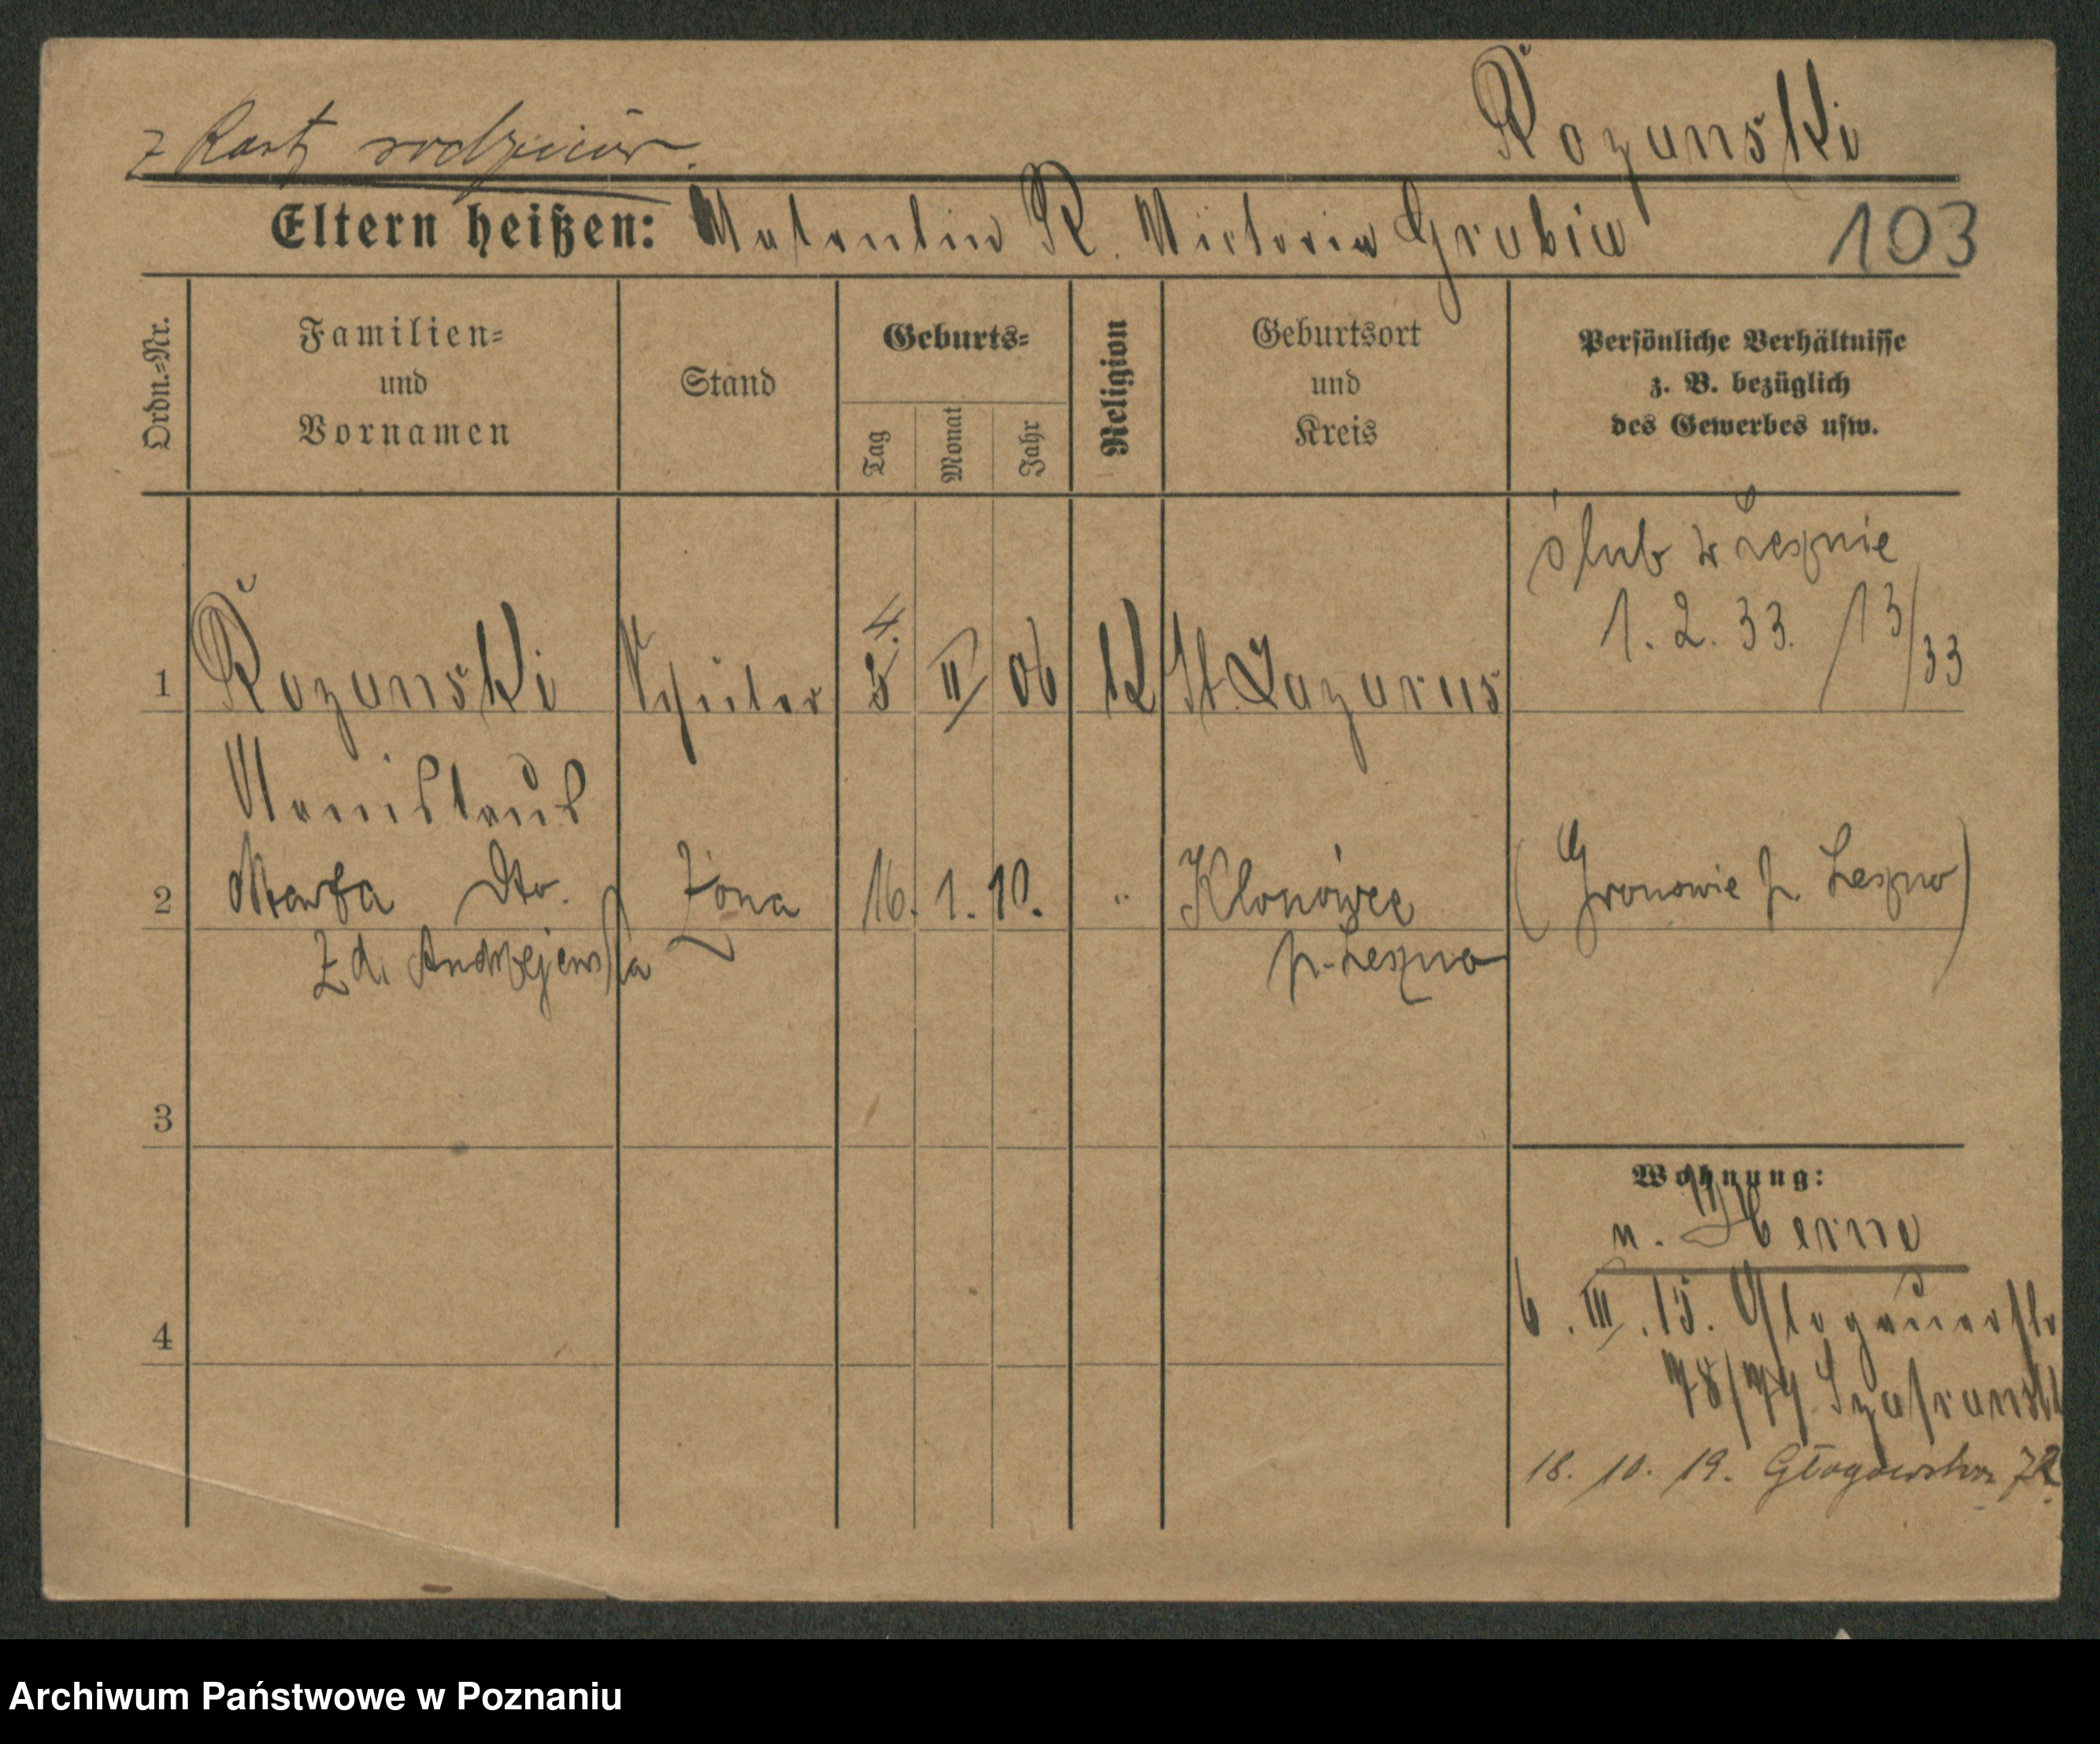 z Karty rodziców.
Rozanski
Eltern heißen: Valentin R. Victoria Grabia
103
Ordn.=Nr.
Familien=
und
Vornamen
Stand
Geburts=
Tag
Monat
Jahr
Religion
Geburtsort
und
Kreis
Persönliche Verhältnisse
z. B. bezüglich
des Gewerbes usw.
ślub w Lesznie
1. 2. 33. /13/33
1 Rozanski Schüler 4. 5 II 06 K St. Lazarus
Stanislaus
2 Marta dto. żona 16. 1. 10. " Klonówiec (Gronowie p. Leszno)
z d. Andrzejewska p. Leszno
3
Wohnung:
n. Herne
6. III. 15. Glogauerstr
4
78/79 Szafranski
18. 10. 19. Głogowska 72.
Archiwum Państwowe w Poznaniu